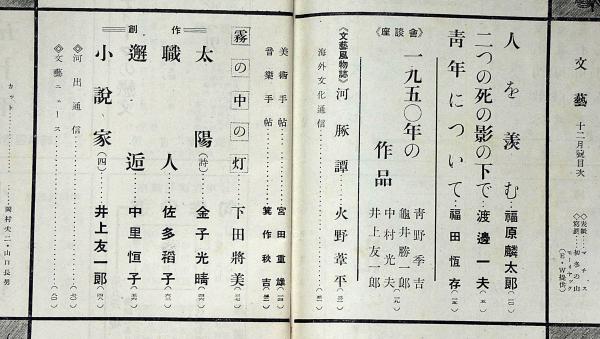 文藝 十二月號目次
◇表紙…マチス
◇寫眞…初冬の山
モーリヤック
(E・W提供)
人を羨む…福原麟太郎(二)
二つの死の影の下で…渡邊一夫(五)
靑年について…福田恆存
《座談會》一九五〇年の作品
靑野季吉
龜井勝一郎
中村光夫
井上友一郎
《文藝風物誌》河豚譚…火野葦平
海外文化通信
美術手帖…宮田重雄
音樂手帖…箕作秋吉
霧の中の灯…下田將美
創作
太陽(詩)…金子光晴
職人…佐多稻子
邂逅…中里恒子
小說家(四)…井上友一郎
◇河出通信
◇文藝ニュース
カット…岡村夫二・山口長男